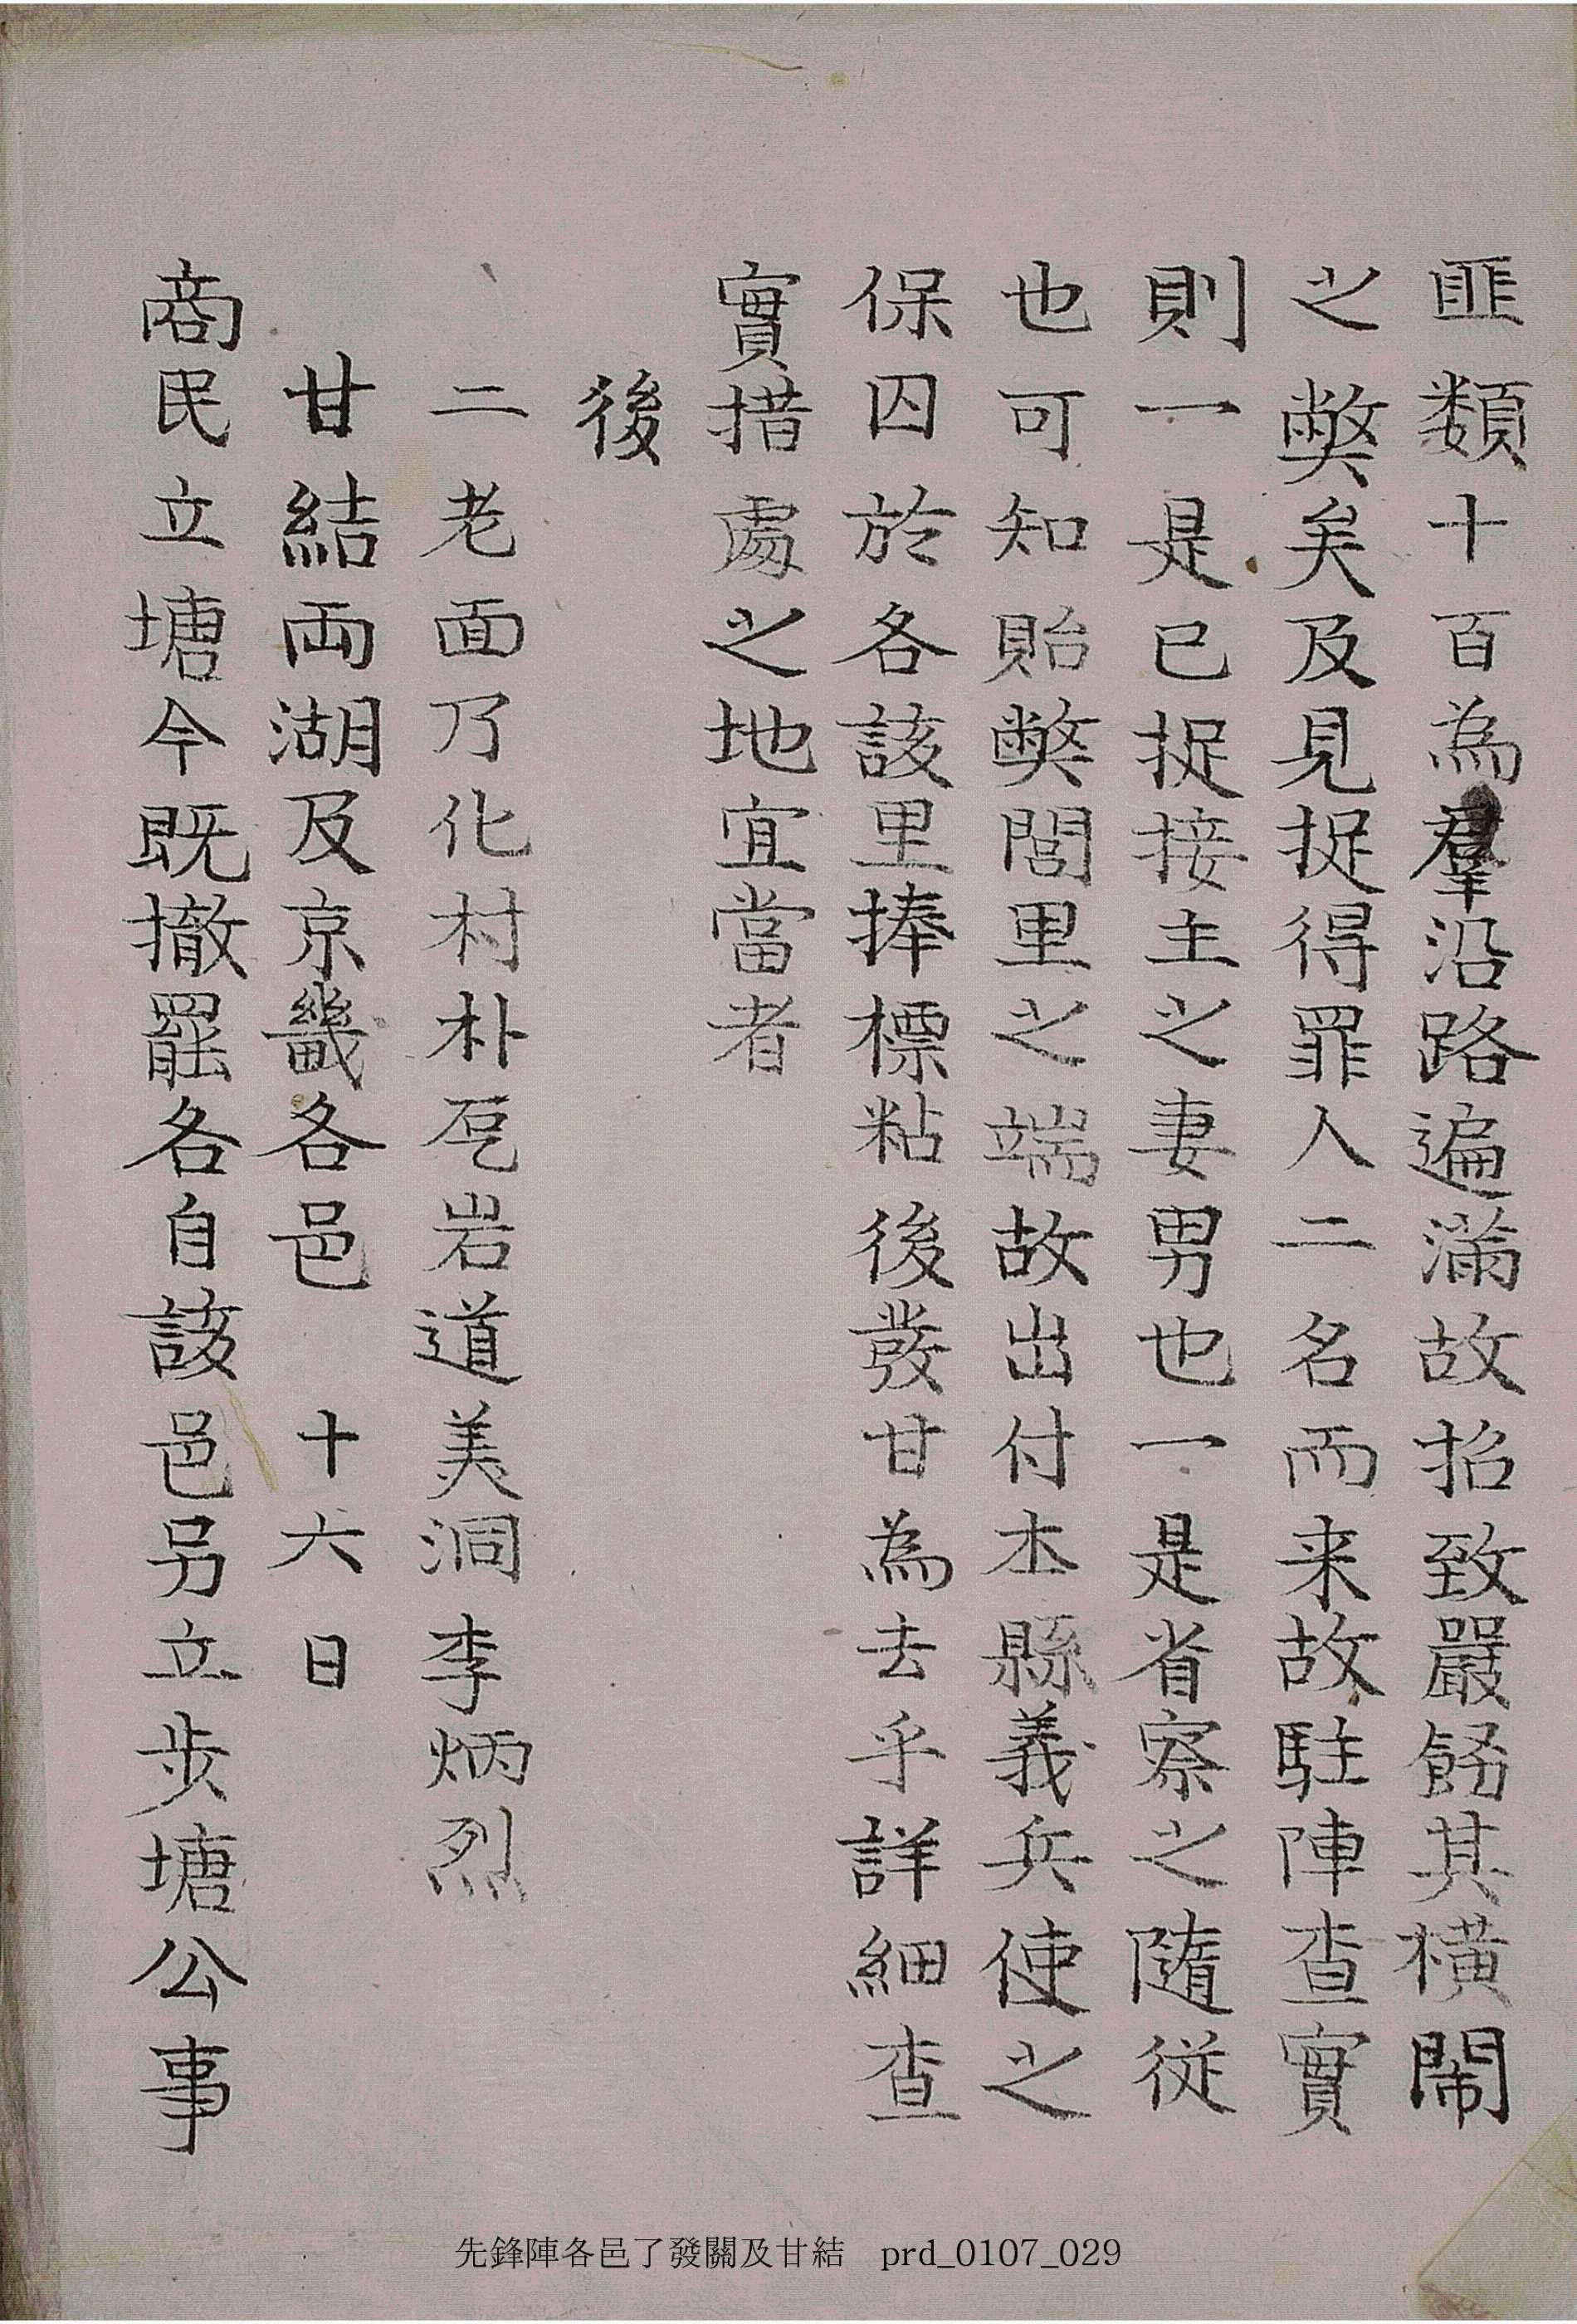 匪類十百為羣沿路遍滿故招致嚴飭其橫鬧
之獘矣及見捉得罪人二名而来故駐陣查實
則一是已捉接主之妻男也一是省察之隨從
也可知貽獘閭里之端故出付本縣義兵使之
保囚於各該里捧標粘後發甘為去乎詳細查
實措處之地宜當者
後
二老面乃化村朴乭岩道美洞李炳烈
甘結両湖及京畿各邑 十六日
商民立塘今既撤罷各自該邑另立步塘公事
先鋒陣各邑了發關及甘結 prd_0107_029